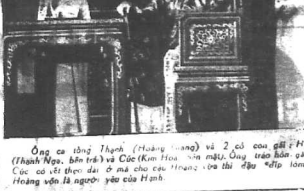 Ông cả tòng Thạch (Hoàng Giang) và 2 cô con gái: H
(Thanh Nga, bên trái) và Cúc (Kim Hoa bên mặt). Ông tráo hôn
Cúc có vết thẹo dài ở má cho cậu Hoàng vừa thi đậu "díp lôm
Hoàng vốn là người yêu của Hạnh.